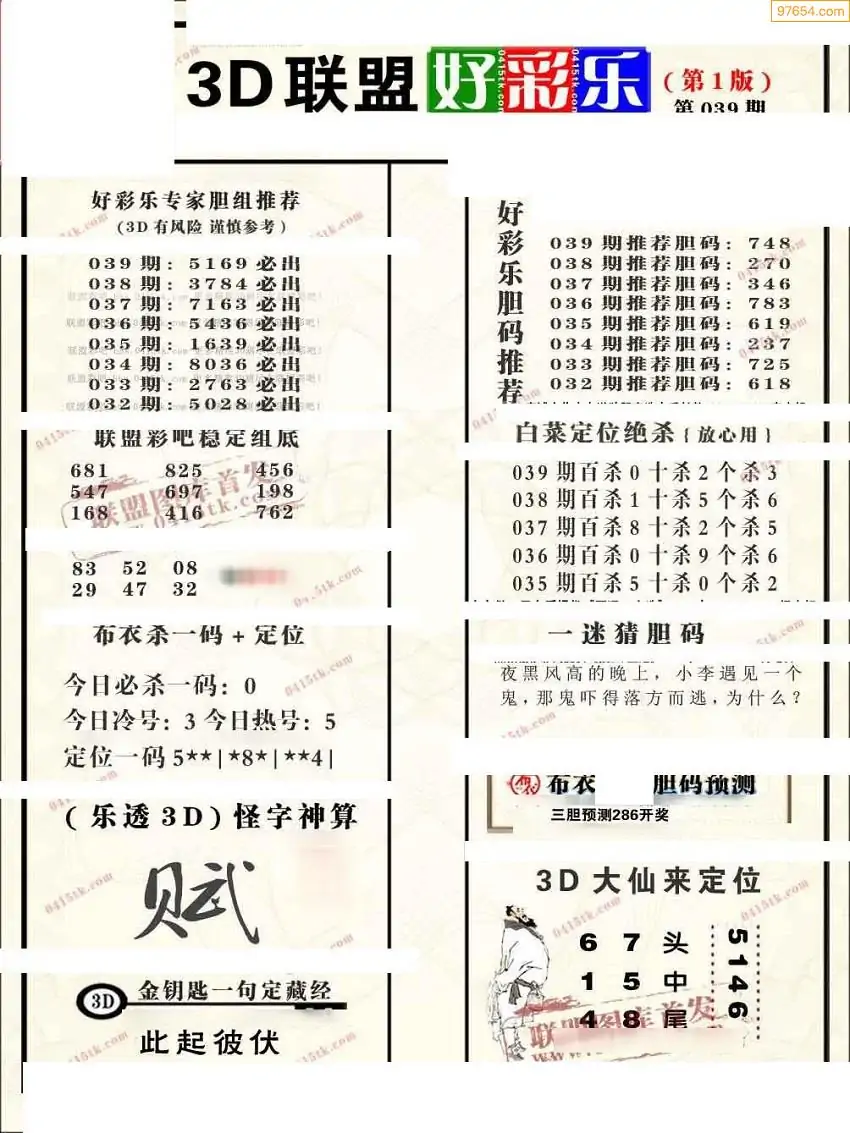 97654.com
3D联盟好彩乐(第1版)
第039期
好彩乐专家胆组推荐
(3D有风险 谨慎参考)
039期:5169必出
038期:3784必出
037期:7163必出
036期:5436必出
035期:1639必出
034期:8036必出
033期:2763必出
032期:5028必出
联盟彩吧稳定组底
681 825 456
547 697 198
168 416 762
83 52 08
29 47 32
布衣杀一码+定位
今日必杀一码:0
今日冷号:3 今日热号:5
定位一码5**|*8*|**4|
(乐透3D)怪字神算
赋
3D 金钥匙一句定藏经
此起彼伏
好彩乐胆码推荐
039期推荐胆码:748
038期推荐胆码:270
037期推荐胆码:346
036期推荐胆码:783
035期推荐胆码:619
034期推荐胆码:237
033期推荐胆码:725
032期推荐胆码:618
白菜定位绝杀{放心用}
039期百杀0十杀2个杀3
038期百杀1十杀5个杀6
037期百杀8十杀2个杀5
036期百杀0十杀9个杀6
035期百杀5十杀0个杀2
一迷猜胆码
夜黑风高的晚上,小李遇见一个
鬼,那鬼吓得落方而逃,为什么?
布衣 胆码预测
三胆预测286开奖
3D大仙来定位
6 7 头
1 5 中
4 8 尾
5146
联盟图库首发
0415tk.com